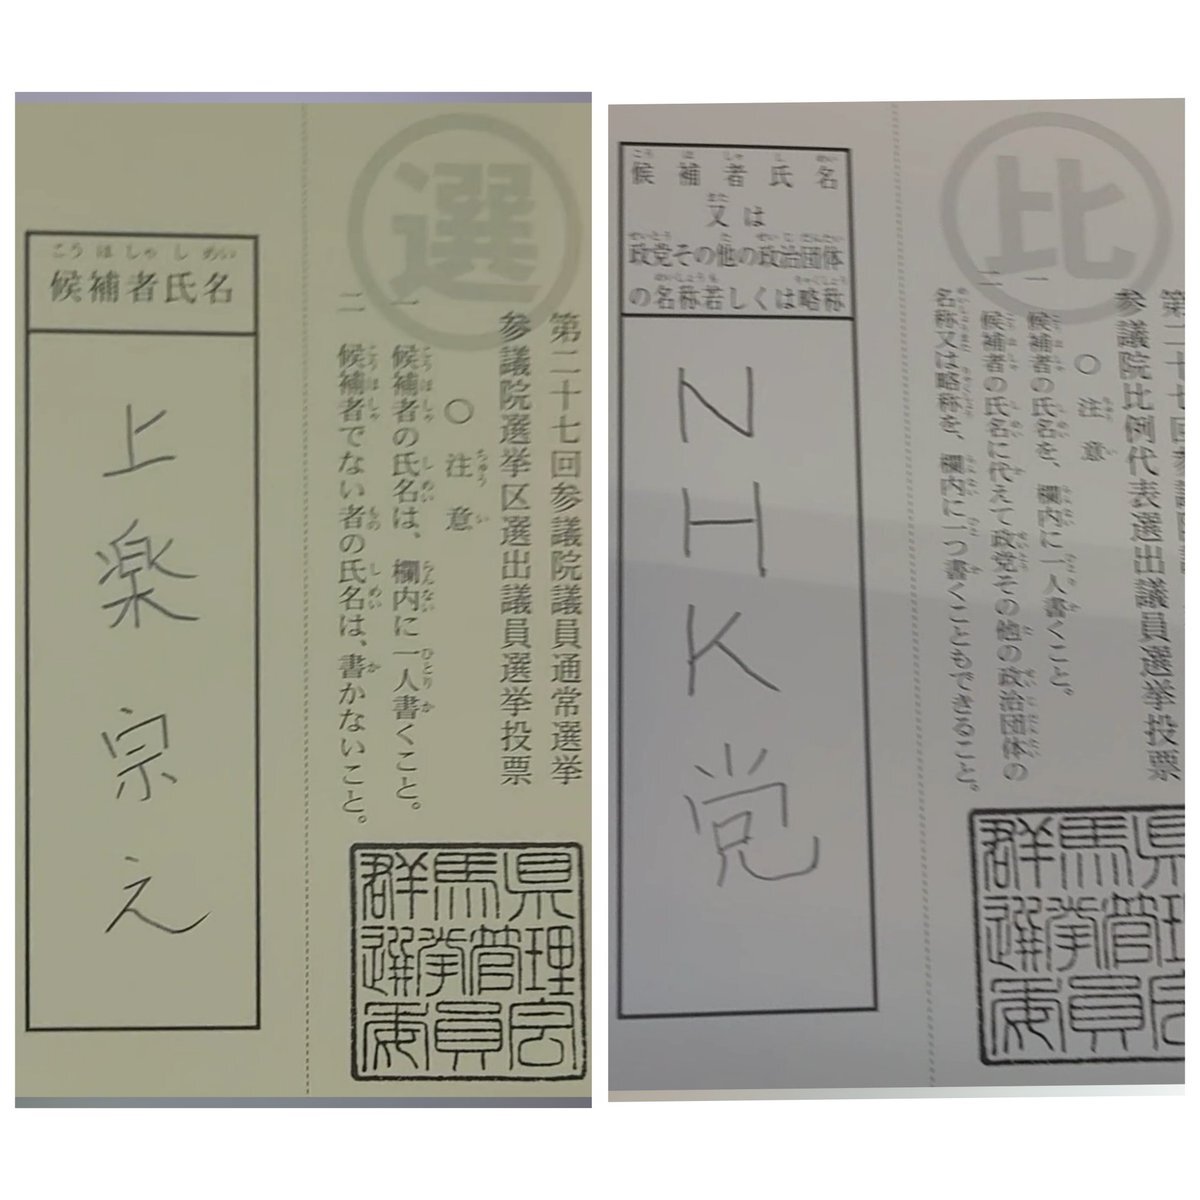 選
第二十七回参議院議員通常選挙
参議院選挙区選出議員選挙投票
○注意
一 候補者の氏名は、欄内に一人書くこと。
二 候補者でない者の氏名は、書かないこと。
群馬県
選挙管理
委員会
候補者氏名
上楽宗え
比
第二十七回参議院議
参議院比例代表選出議員選挙投票
○注意
一 候補者の氏名を、欄内に一人書くこと。
二 候補者の氏名に代えて政党その他の政治団体の
名称又は略称を、欄内に一つ書くこともできること。
群馬県
選挙管理
委員会
候補者氏名
又は
政党その他の政治団体
の名称若しくは略称
NHK党